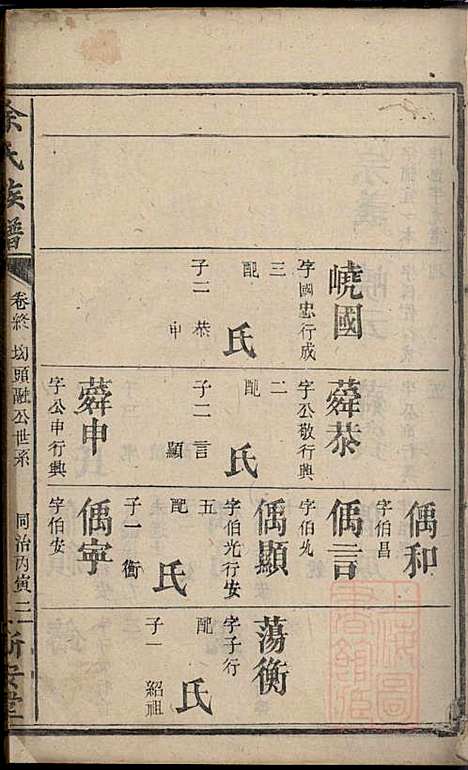 余氏族譜
卷終
坳頭融公世系
同治丙寅
三
新安堂
嶢國
字國忠行成三
配 氏
子二 恭 申
蕣恭
字公敬行興二
配 氏
子二 言 顯
蕣申
字公申行興
偊和
字伯昌
偊言
字伯九
偊顯
字伯光行安五
配 氏
子一 衡
偊寧
字伯安
蕩衡
字子行
配 氏
子一 紹祖